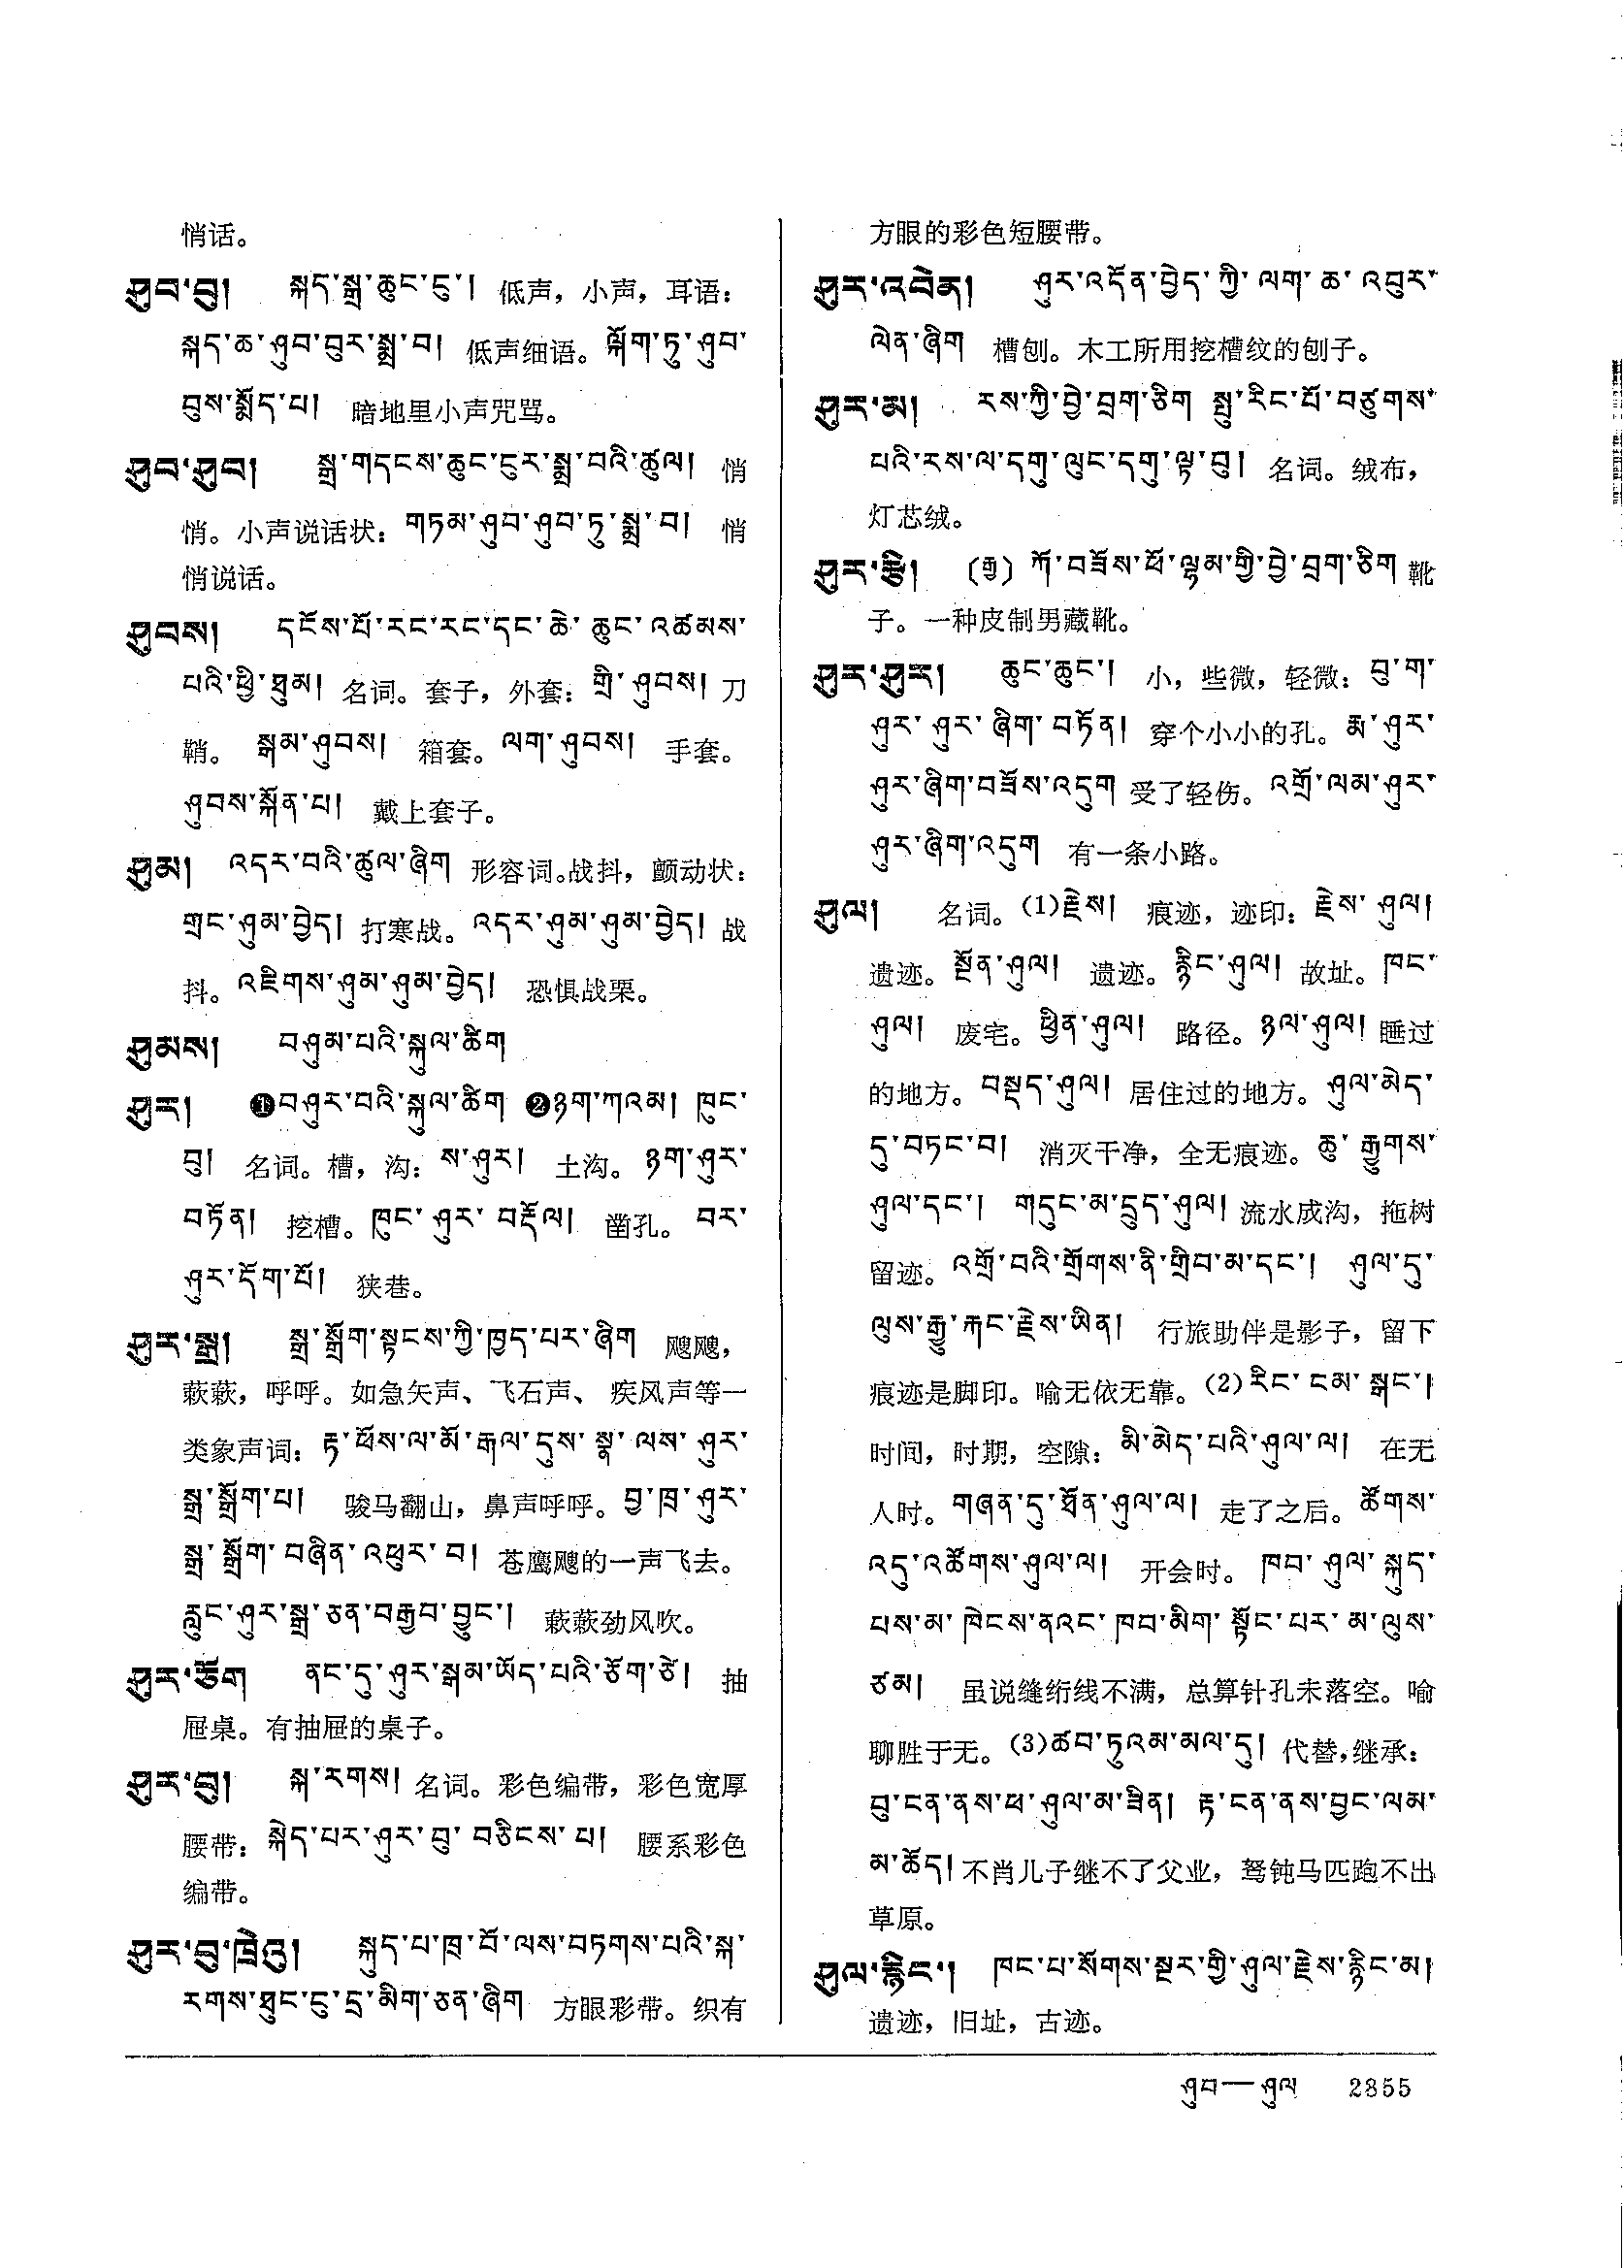 悄话。
ཤུབ་བུ། སྐད་སྒྲ་ཆུང་ངུ་། 低声，小声，耳语：
སྐད་ཆ་ཤུབ་བུར་སྨྲ་བ། 低声细语。ལྐོག་ཏུ་ཤུབ་
བུས་སྨོད་པ། 暗地里小声咒骂。
ཤུབ་ཤུབ། སྒྲ་གདངས་ཆུང་ངུར་སྨྲ་བའི་ཚུལ། 悄
悄。小声说话状：གཏམ་ཤུབ་ཤུབ་ཏུ་སྨྲ་བ། 悄
悄说话。
ཤུབས། དངོས་པོ་རང་རང་དང་ཆེ་ཆུང་འཚམས་
པའི་ཕྱི་ཐུམ། 名词。套子，外套：གྲི་ཤུབས། 刀
鞘。 སྒམ་ཤུབས། 箱套。ལག་ཤུབས། 手套。
ཤུབས་སྐོན་པ། 戴上套子。
ཤུམ། འདར་བའི་ཚུལ་ཞིག 形容词。战抖，颤动状：
གྲང་ཤུམ་བྱེད། 打寒战。འདར་ཤུམ་ཤུམ་བྱེད། 战
抖。འཇིགས་ཤུམ་ཤུམ་བྱེད། 恐惧战栗。
ཤུམས། བཤུམ་པའི་སྐུལ་ཚིག
ཤུར། ❶བཤུར་བའི་སྐུལ་ཚིག ❷ཉག་ཀའམ། ཁུང་
བུ། 名词。槽，沟：ས་ཤུར། 土沟。ཉག་ཤུར་
བཏོན། 挖槽。ཁུང་ཤུར་བརྡོལ། 凿孔。བར་
ཤུར་དོག་པོ། 狭巷。
ཤུར་སྒྲ། སྒྲ་སྒྲོག་སྟངས་ཀྱི་ཁྱད་པར་ཞིག 飕飕，
蔌蔌，呼呼。如急矢声、飞石声、疾风声等一
类象声词：རྟ་ཕོས་ལ་མོ་རྒལ་དུས་སྣ་ལས་ཤུར་
སྒྲ་སྒྲོག་པ། 骏马翻山，鼻声呼呼。བྱ་ཁྲ་ཤུར་
སྒྲ་སྒྲོག་བཞིན་འཕུར་བ། 苍鹰飕的一声飞去。
རླུང་ཤུར་སྒྲ་ཅན་བརྒྱབ་བྱུང་། 蔌蔌劲风吹。
ཤུར་ཅོག ནང་དུ་ཤུར་སྒམ་ཡོད་པའི་ཅོག་ཙེ། 抽
屉桌。有抽屉的桌子。
ཤུར་བུ། སྐ་རགས། 名词。彩色编带，彩色宽厚
腰带：སྐེད་པར་ཤུར་བུ་བཅིངས་པ། 腰系彩色
编带。
ཤུར་བུ་ཁྲེའུ། སྐུད་པ་ཁྲ་བོ་ལས་བཏགས་པའི་སྐ་
རགས་ཐུང་ངུ་དྲ་མིག་ཅན་ཞིག 方眼彩带。织有
方眼的彩色短腰带。
ཤུར་འབེན། ཤུར་འདོན་བྱེད་ཀྱི་ལག་ཆ་འབུར་
ལེན་ཞིག 槽刨。木工所用挖槽纹的刨子。
ཤུར་མ། རས་ཀྱི་བྱེ་བྲག་ཅིག སྤུ་རིང་པོ་བཙུགས་
པའི་རས་ལ་དགུ་ལུང་དགུ་ལྟ་བུ། 名词。绒布，
灯芯绒。
ཤུར་རྩི། (རྒྱ) ཀོ་བཟོས་ཕོ་ལྷམ་གྱི་བྱེ་བྲག་ཅིག 靴
子。一种皮制男藏靴。
ཤུར་ཤུར། ཆུང་ཆུང་། 小，些微，轻微：བུ་ག་
ཤུར་ཤུར་ཞིག་བཏོན། 穿个小小的孔。རྨ་ཤུར་
ཤུར་ཞིག་བཟོས་འདུག 受了轻伤。འགྲོ་ལམ་ཤུར་
ཤུར་ཞིག་འདུག 有一条小路。
ཤུལ། 名词。(1)རྗེས། 痕迹，迹印：རྗེས་ཤུལ།
遗迹。སྔོན་ཤུལ། 遗迹。རྙིང་ཤུལ། 故址。ཁང་
ཤུལ། 废宅。ཕྱིན་ཤུལ། 路径。ཉལ་ཤུལ། 睡过
的地方。བསྡད་ཤུལ། 居住过的地方。ཤུལ་མེད་
དུ་བཏང་བ། 消灭干净，全无痕迹。ཆུ་རྒྱུགས་
ཤུལ་དང་། གདུང་མ་དྲུད་ཤུལ། 流水成沟，拖树
留迹。འགྲོ་བའི་གྲོགས་ནི་གྲིབ་མ་དང་། ཤུལ་དུ་
ལུས་རྒྱུ་རྐང་རྗེས་ཡིན། 行旅助伴是影子，留下
痕迹是脚印。喻无依无靠。(2)རིང་ངམ་སྒང་།
时间，时期，空隙：མི་མེད་པའི་ཤུལ་ལ། 在无
人时。གཞན་དུ་ཐོན་ཤུལ་ལ། 走了之后。ཚོགས་
འདུ་འཚོགས་ཤུལ་ལ། 开会时。ཁབ་ཤུལ་སྐུད་
པས་མ་ཁེངས་ནའང་ཁབ་མིག་སྟོང་པར་མ་ལུས་
ཙམ། 虽说缝绗线不满，总算针孔未落空。喻
聊胜于无。(3)ཚབ་ཏུའམ་མལ་དུ། 代替，继承：
བུ་ངན་ནས་ཕ་ཤུལ་མ་ཟིན། རྟ་ངན་ནས་བྱང་ལམ་
མ་ཆོད། 不肖儿子继不了父业，驽钝马匹跑不出
草原。
ཤུལ་རྙིང་། ཁང་པ་སོགས་སྔར་གྱི་ཤུལ་རྗེས་རྙིང་མ།
遗迹，旧址，古迹。
ཤུབ—ཤུལ 2855